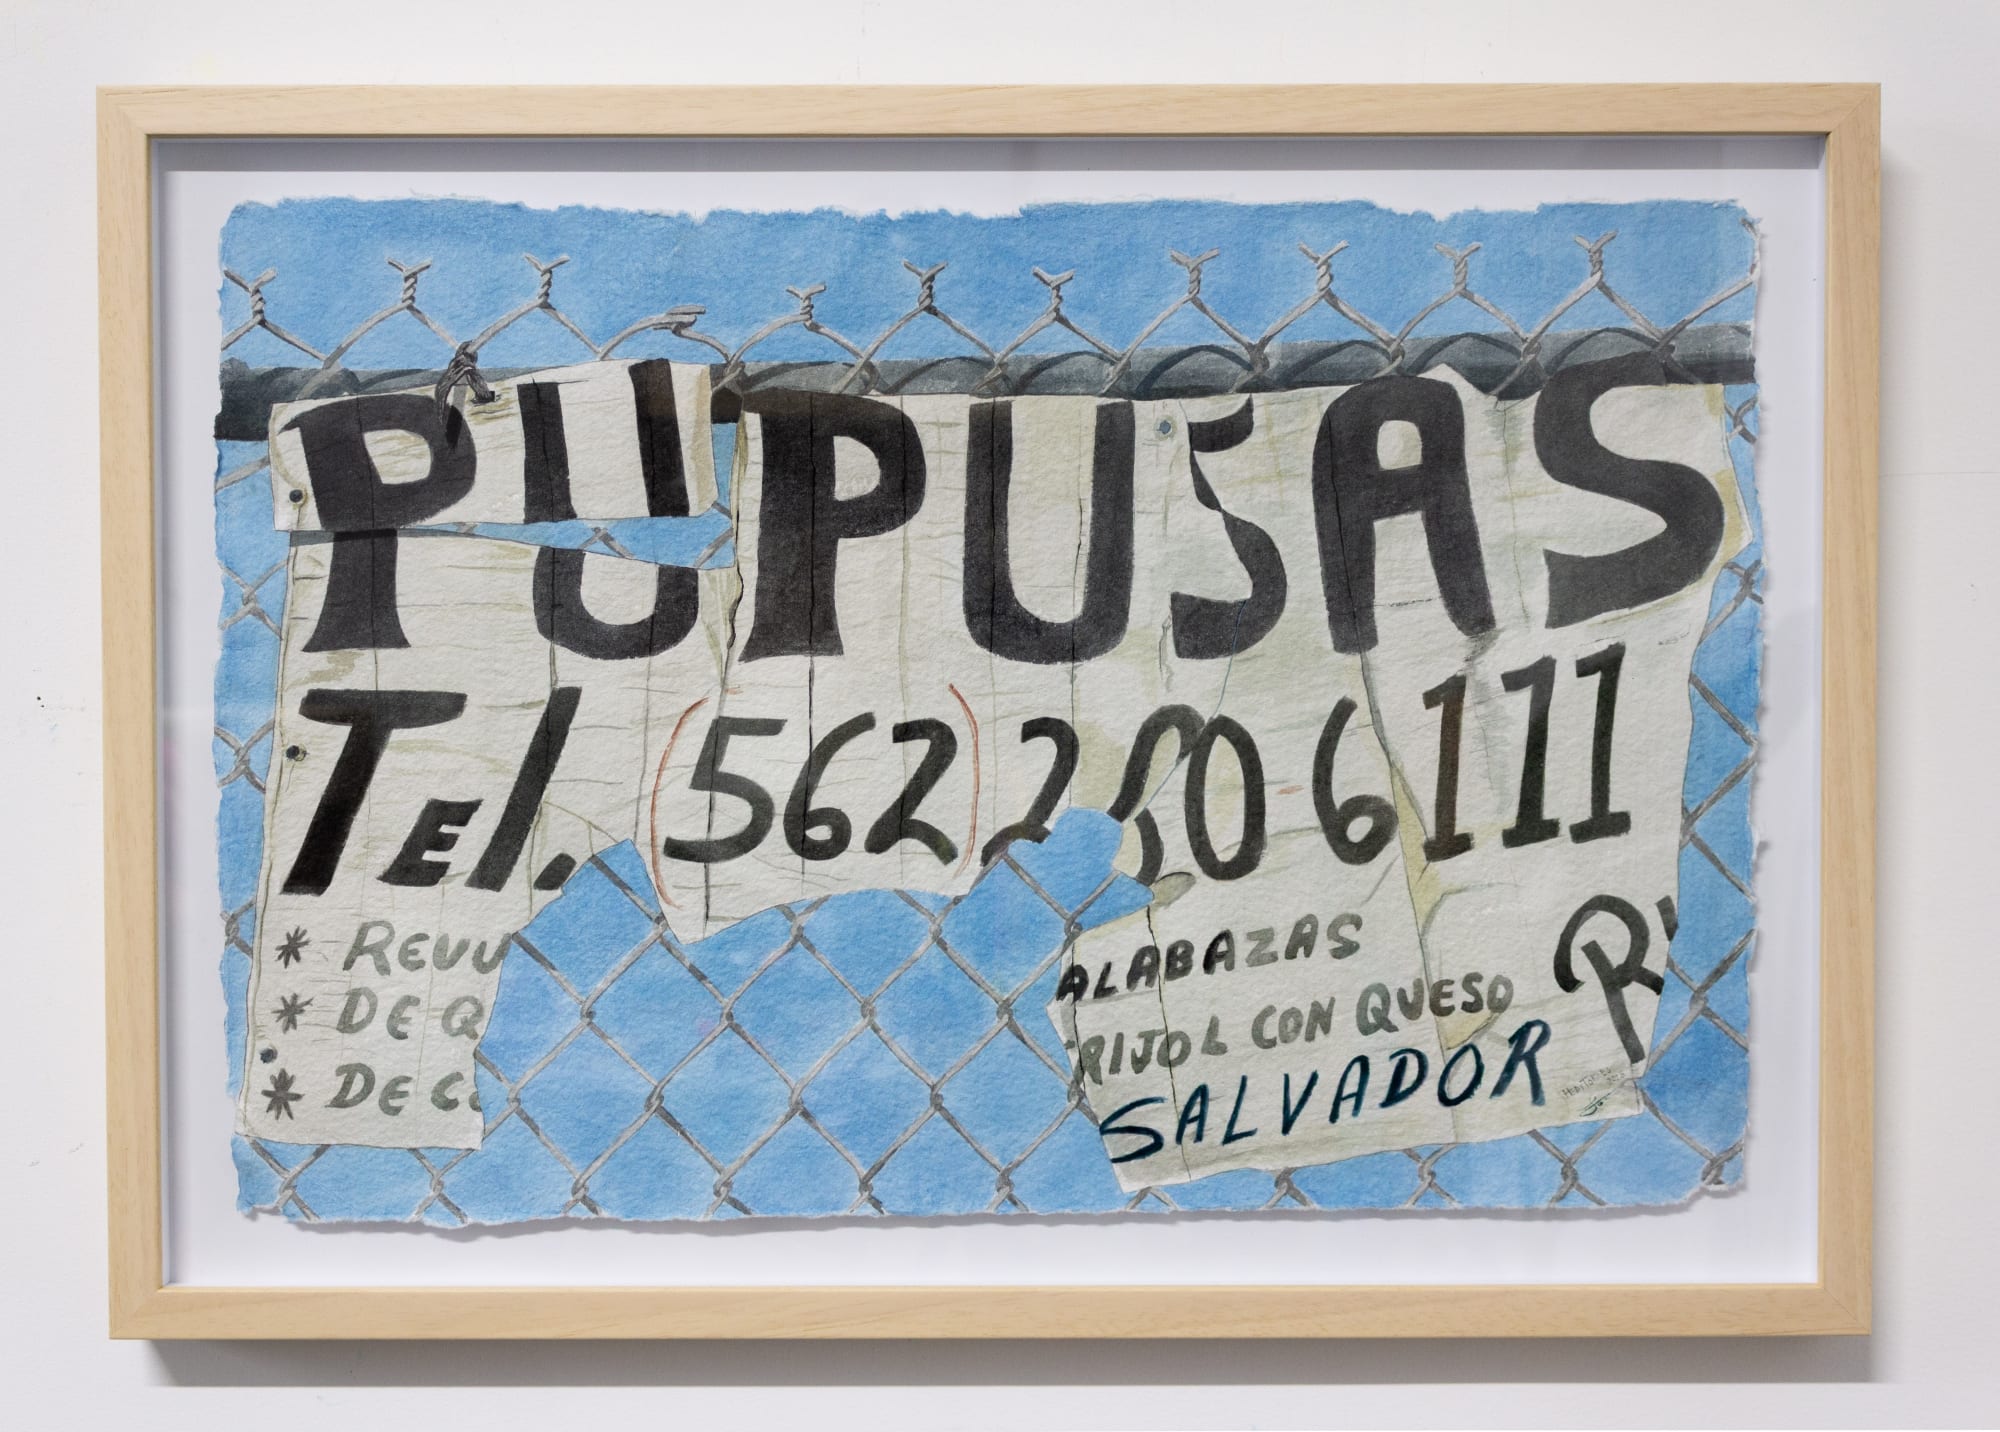 PUPUSAS
Tel. (562) 220-6111
* REVU
* DE Q
* DE C
ALABAZAS
RIJOL CON QUESO
SALVADOR
R